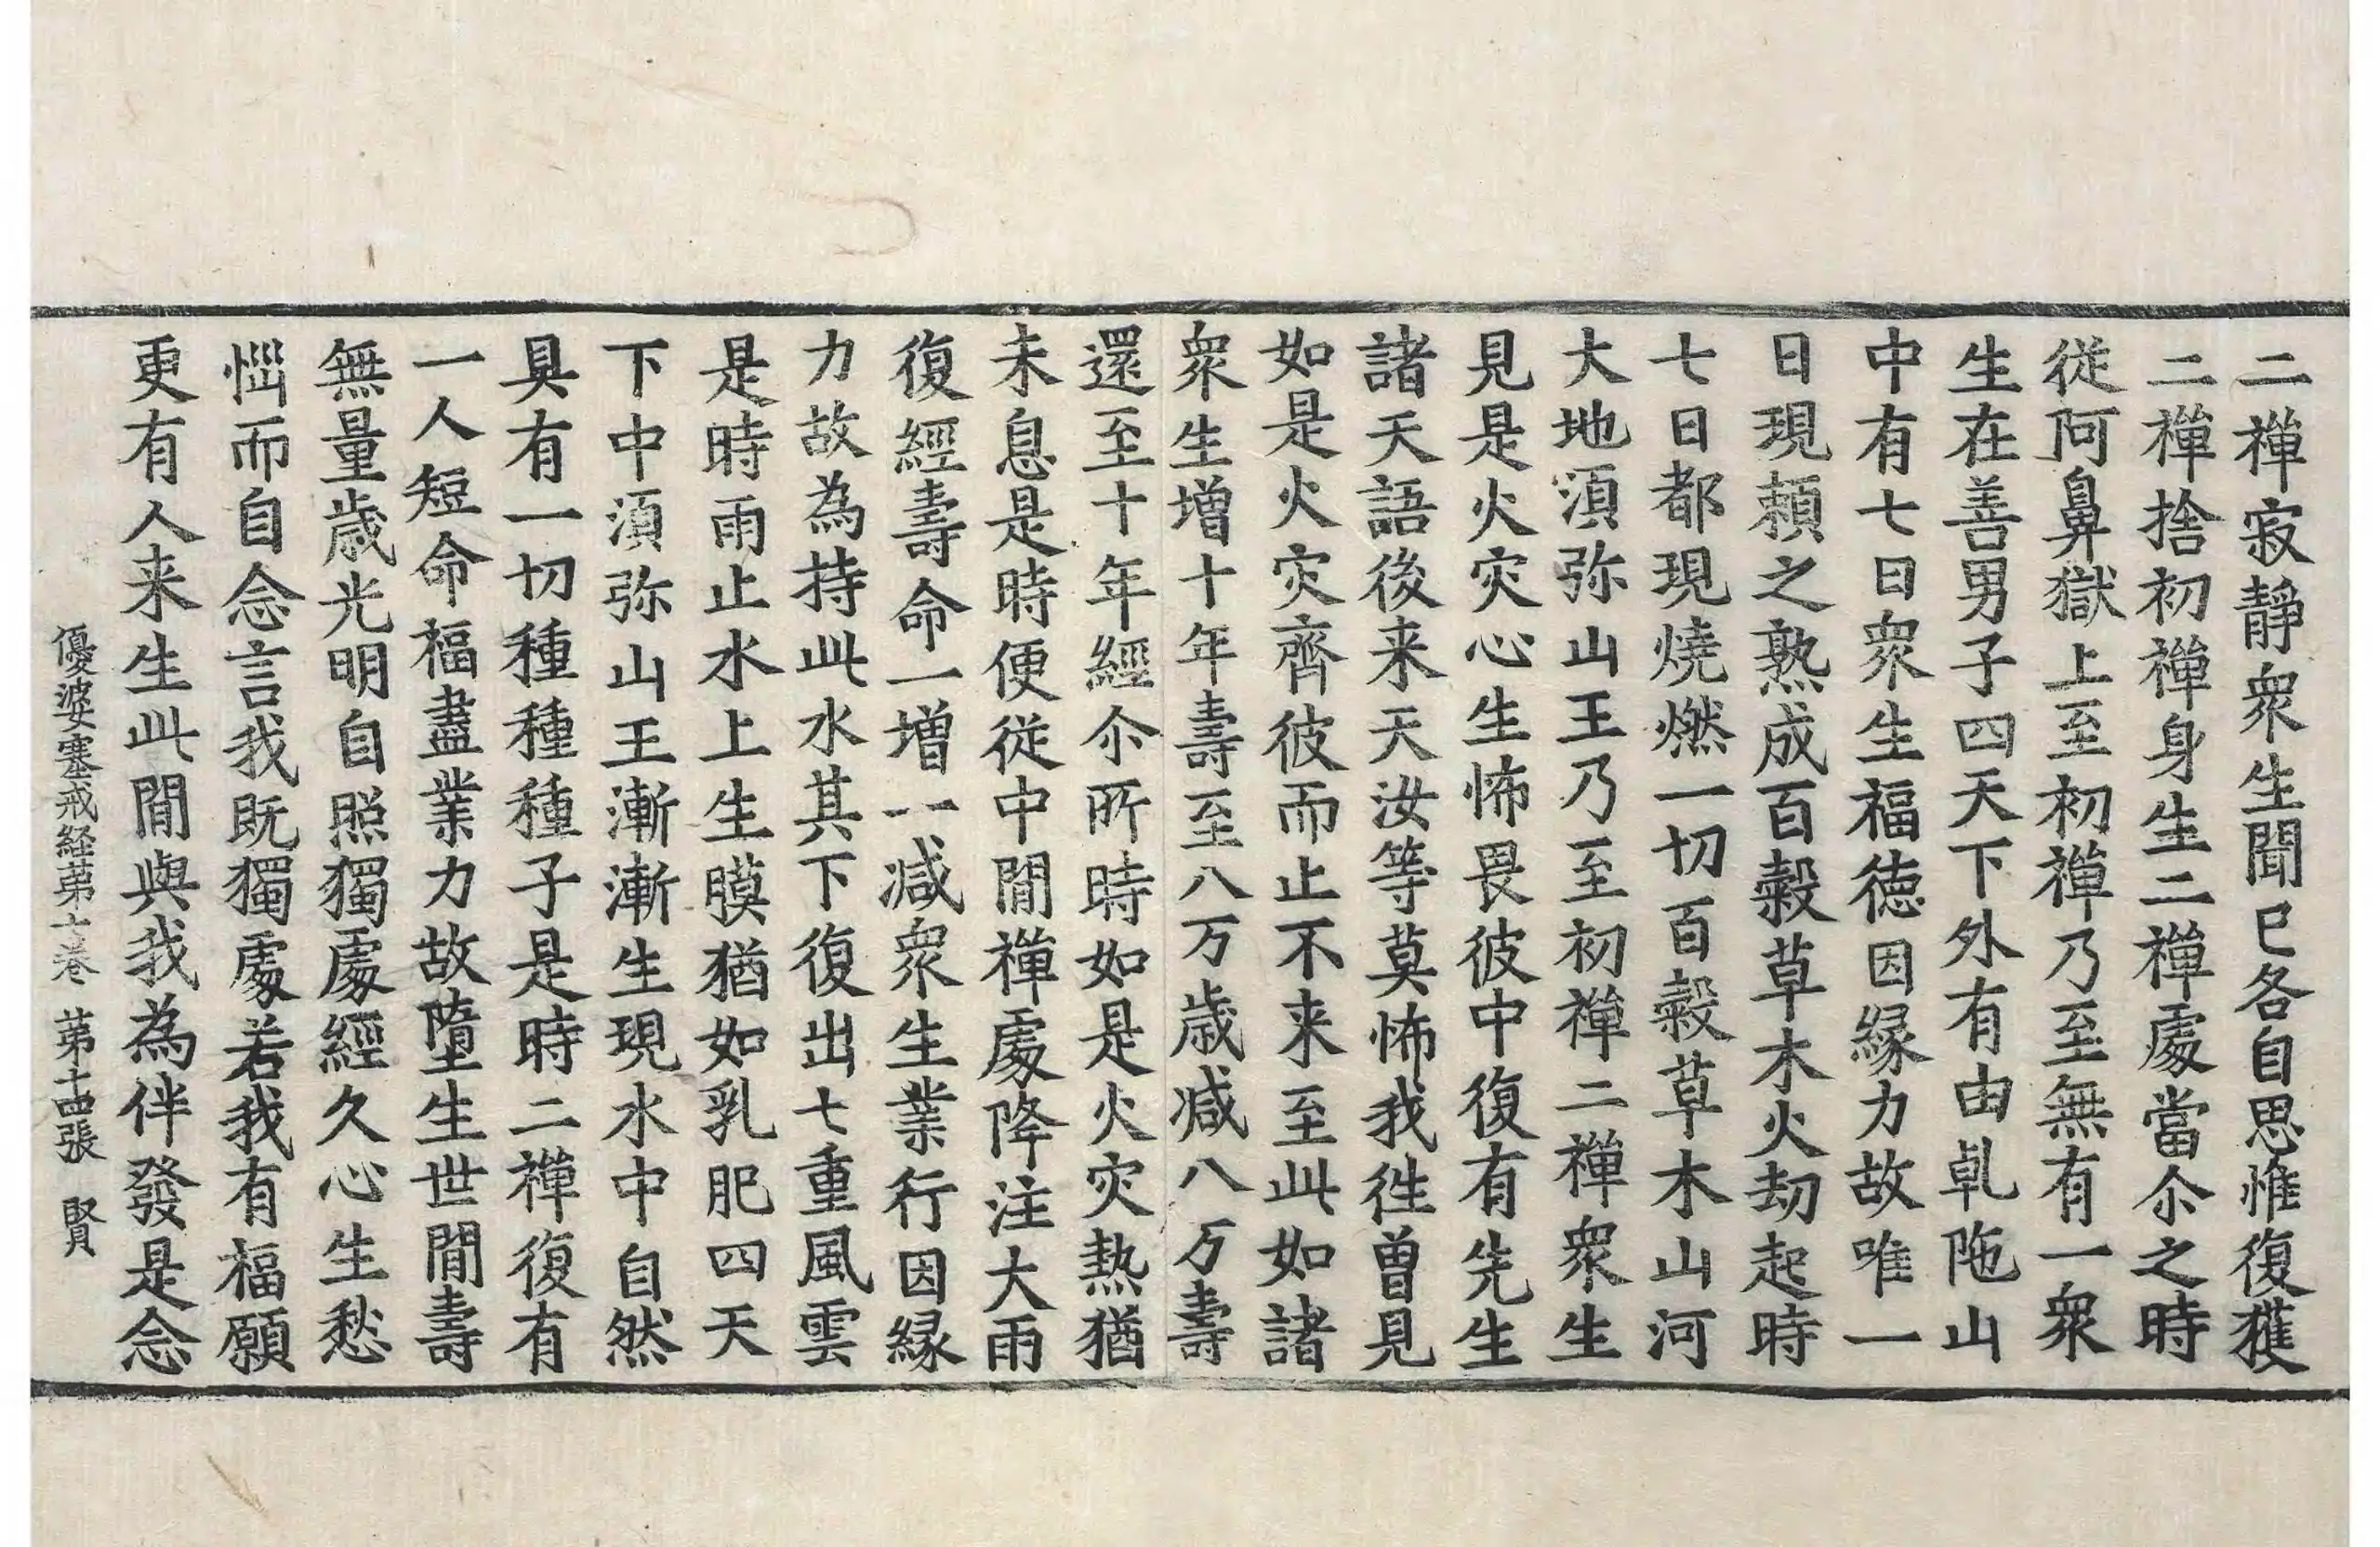 二禪寂靜衆生聞已各自思惟復獲
二禪捨初禪身生二禪處當尒之時
從阿鼻獄上至初禪乃至無有一衆
生在善男子四天下外有由乹陁山
中有七日衆生福德因緣力故唯一
日現賴之熟成百糓草木火劫起時
七日都現燒燃一切百糓草木山河
大地湏弥山王乃至初禪二禪衆生
見是火灾心生怖畏彼中復有先生
諸天語後来天汝等莫怖我徃曾見
如是火灾齊彼而止不来至此如諸
衆生增十年壽至八万歳減八万壽
還至十年經尒所時如是火灾熱猶
未息是時便從中間禪處降注大雨
復經壽命一增一減衆生業行因緣
力故為持此水其下復出七重風雲
是時雨止水上生膜猶如乳肥四天
下中湏弥山王漸漸生現水中自然
具有一切種種種子是時二禪復有
一人短命福盡業力故墮生世間壽
無量歳光明自照獨處經久心生愁
惱而自念言我既獨處若我有福願
更有人来生此間與我為伴發是念
優婆塞戒経苐七巻 苐十四張 賢